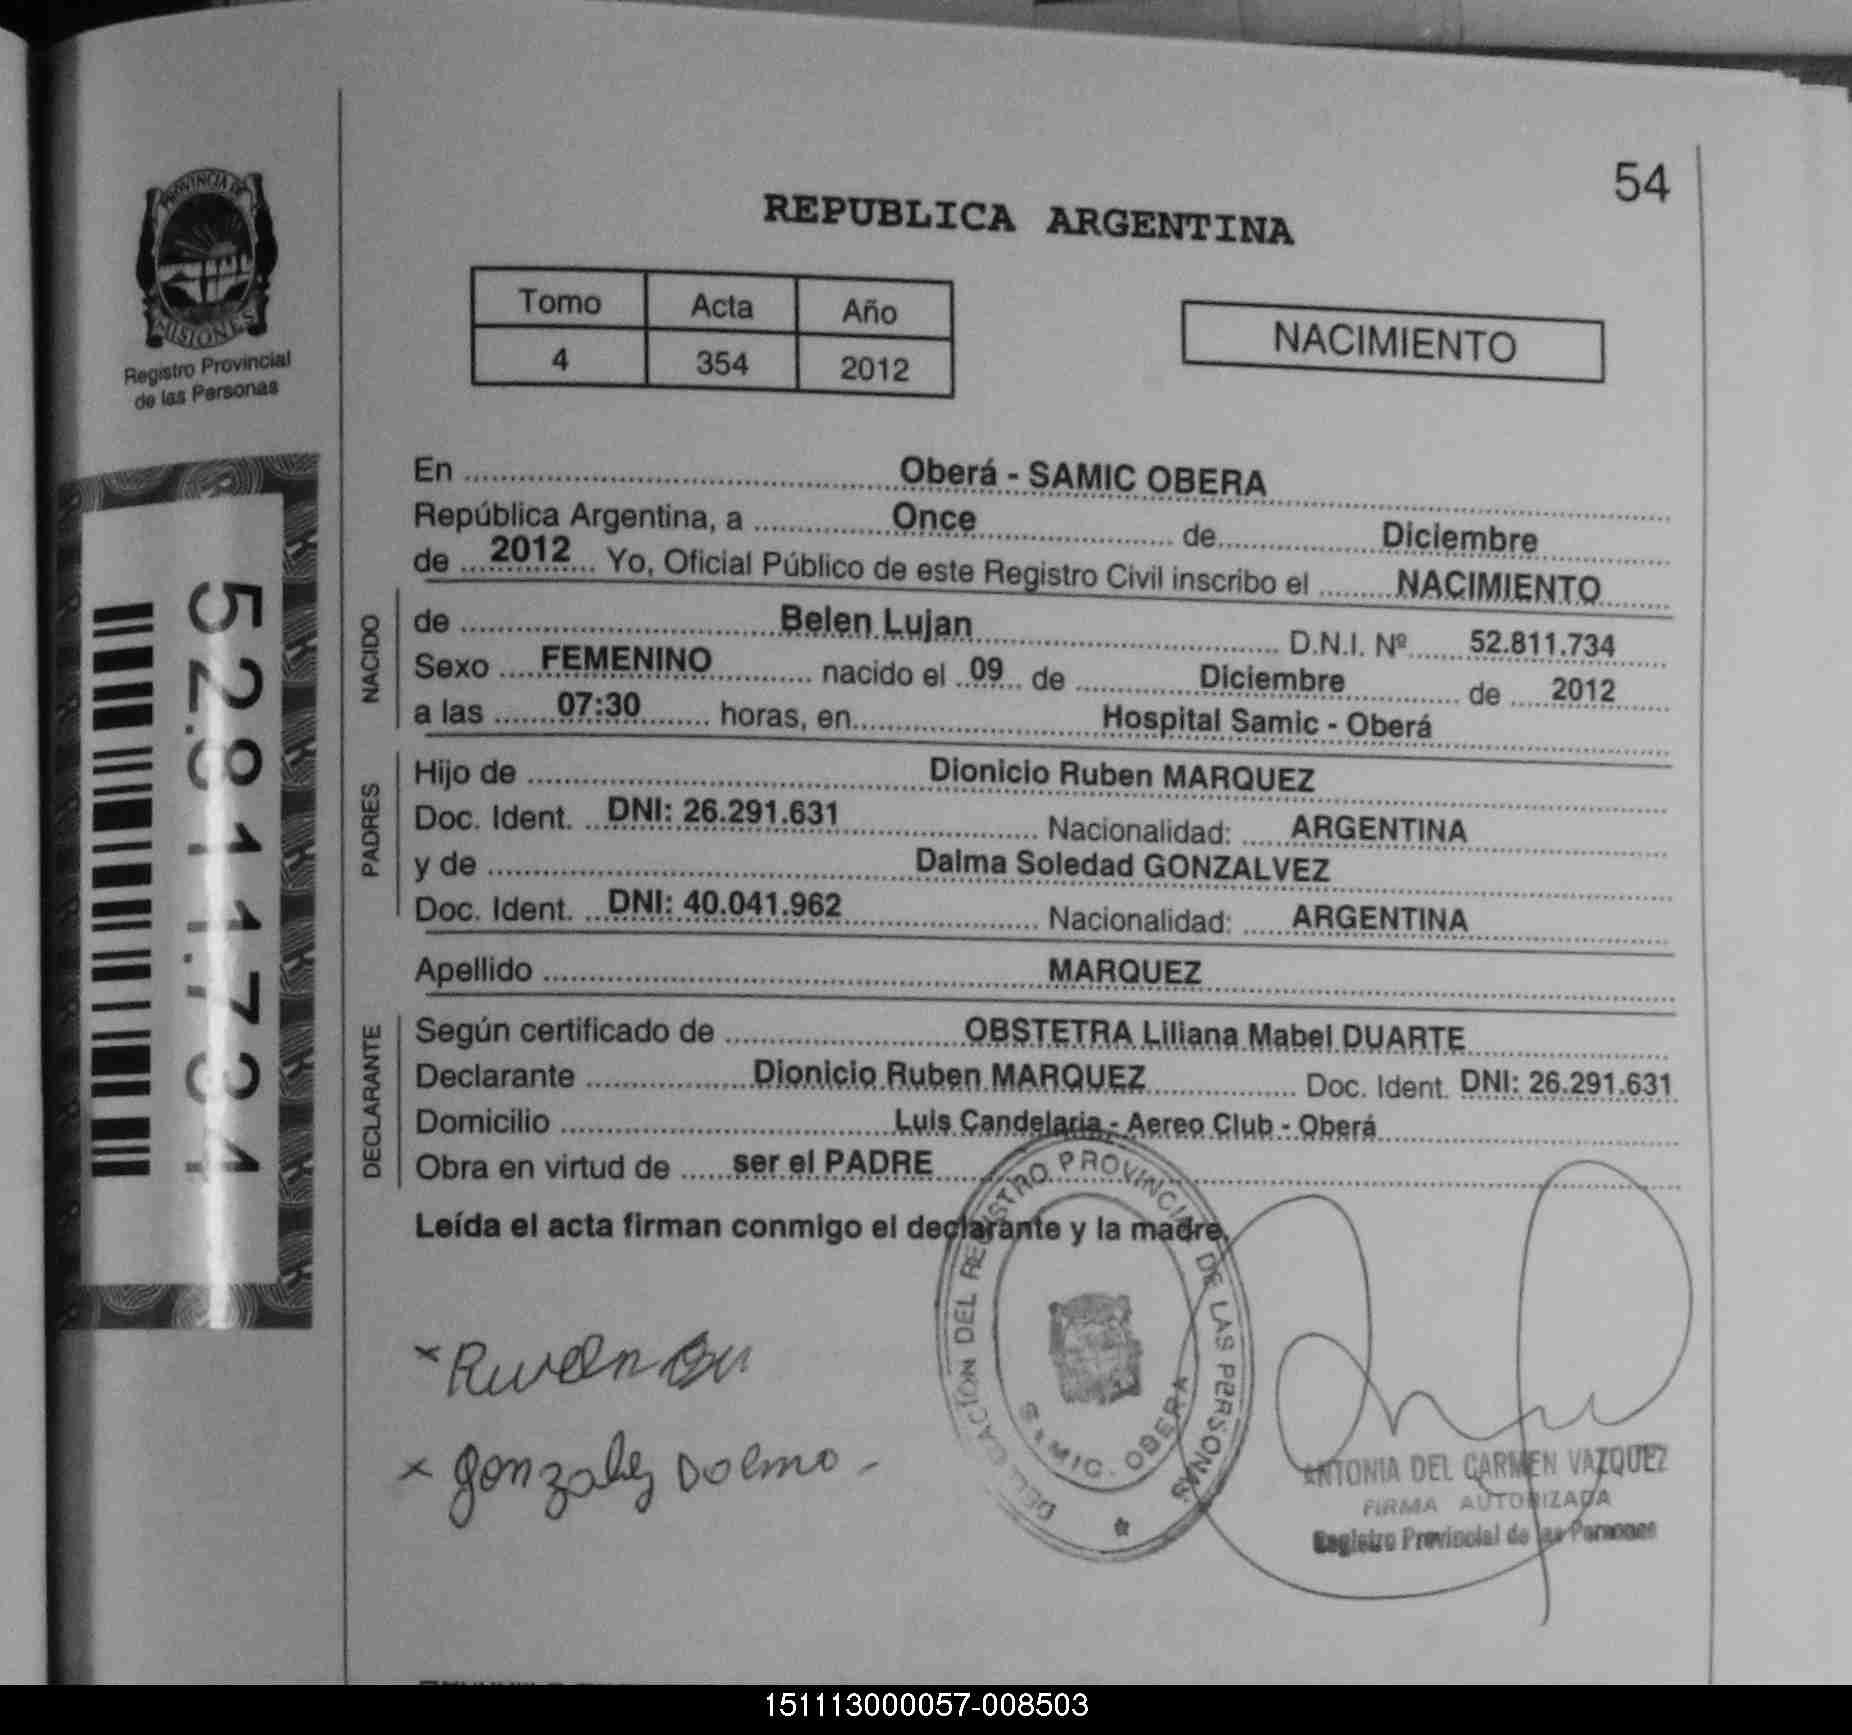 PROVINCIA DE
MISIONES
Registro Provincial
de las Personas
52.811.734
54
REPUBLICA ARGENTINA
Tomo Acta Año
4 354 2012
NACIMIENTO
En Oberá - SAMIC OBERA
República Argentina, a Once de Diciembre
de 2012 Yo, Oficial Público de este Registro Civil inscribo el NACIMIENTO
NACIDO
de Belen Lujan D.N.I. Nº 52.811.734
Sexo FEMENINO nacido el 09 de Diciembre de 2012
a las 07:30 horas, en Hospital Samic - Oberá
PADRES
Hijo de Dionicio Ruben MARQUEZ
Doc. Ident. DNI: 26.291.631 Nacionalidad: ARGENTINA
y de Dalma Soledad GONZALVEZ
Doc. Ident. DNI: 40.041.962 Nacionalidad: ARGENTINA
Apellido MARQUEZ
DECLARANTE
Según certificado de OBSTETRA Liliana Mabel DUARTE
Declarante Dionicio Ruben MARQUEZ Doc. Ident. DNI: 26.291.631
Domicilio Luis Candelaria - Aereo Club - Oberá
Obra en virtud de ser el PADRE
Leída el acta firman conmigo el declarante y la madre.
DEL REGISTRO PROVINCIAL DE LAS PERSONAS
SAMIC. OBERA
ANTONIA DEL CARMEN VAZQUEZ
FIRMA AUTORIZADA
Registro Provincial de las Personas
151113000057-008503